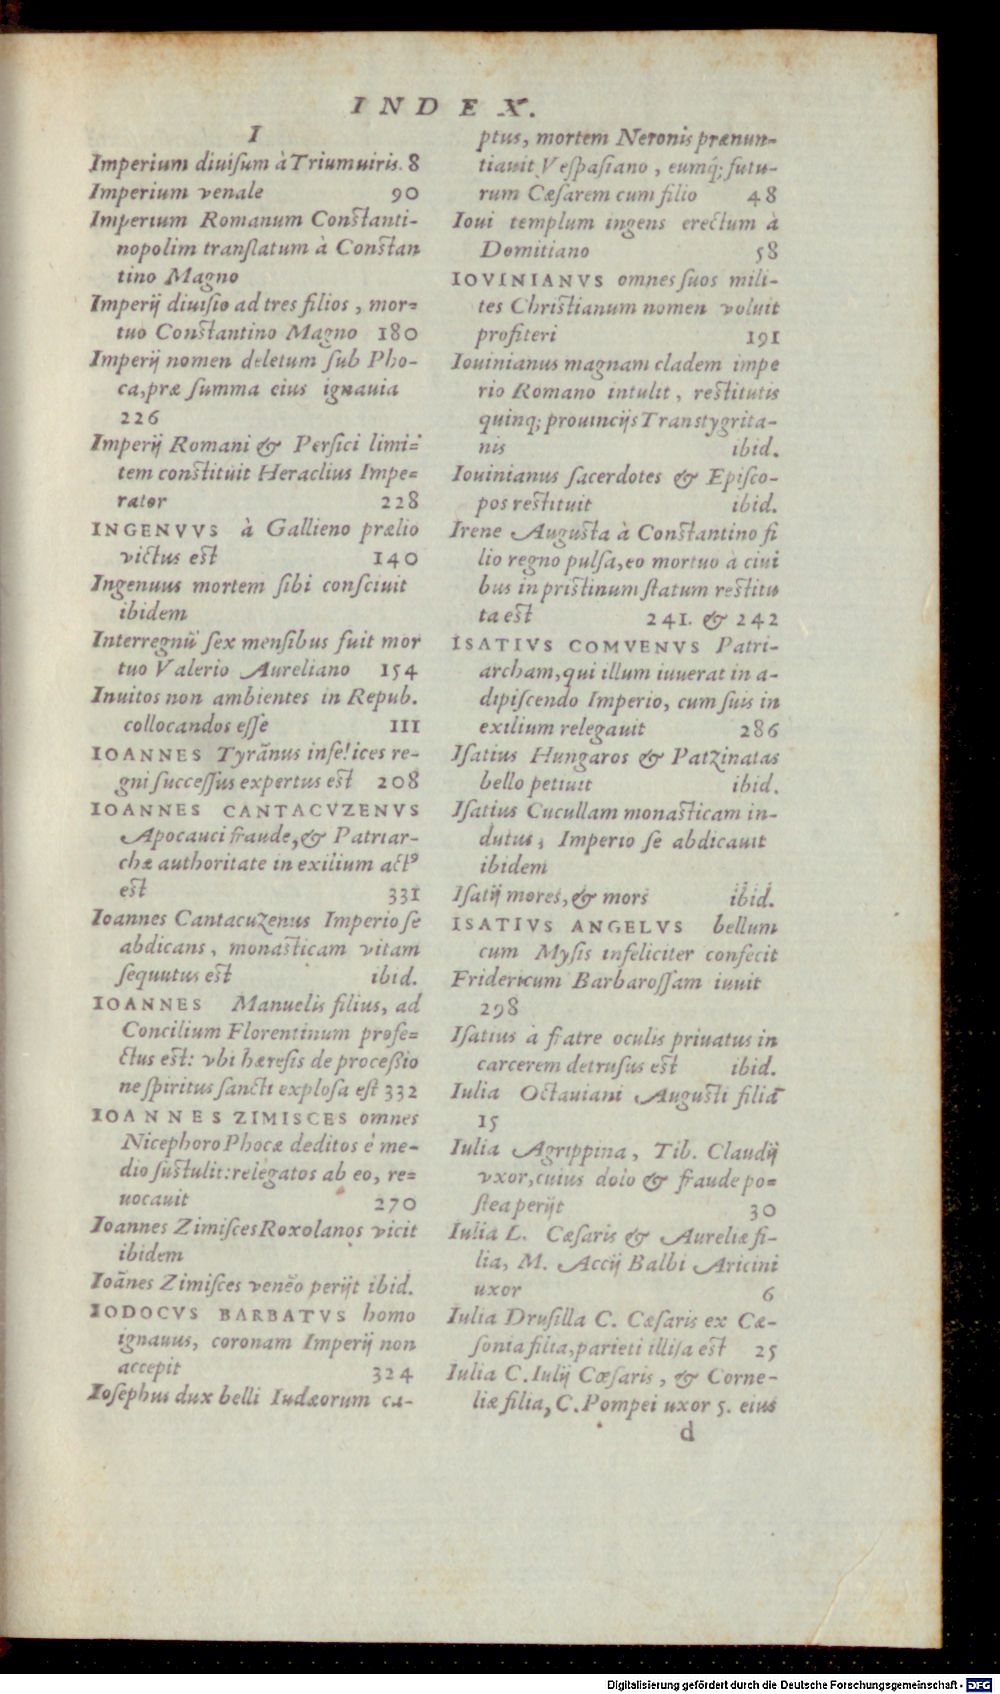 INDEX.
I
Imperium diuiſum à Triumuiris. 8
Imperium venale 90
Imperium Romanum Conſtanti-
nopolim tranſlatum à Conſtan
tino Magno
Imperij diuiſio ad tres filios, mor-
tuo Conſtantino Magno 180
Imperij nomen deletum ſub Pho-
ca, præ ſumma eius ignauia
226
Imperij Romani & Perſici limi-
tem conſtituit Heraclius Impe-
rator 228
INGENVVS à Gallieno prælio
victus eſt 140
Ingenuus mortem ſibi conſciuit
ibidem
Interregnũ ſex menſibus fuit mor
tuo Valerio Aureliano 154
Inuitos non ambientes in Repub.
collocandos eſſe 111
IOANNES Tyrãnus infelices re-
gni ſucceſſus expertus eſt 208
IOANNES CANTACVZENVS
Apocauci fraude, & Patriar-
chæ authoritate in exilium actꝰ
eſt 331
Ioannes Cantacuzenus Imperio ſe
abdicans, monaſticam vitam
ſequutus eſt ibid.
IOANNES Manuelis filius, ad
Concilium Florentinum profe-
ctus eſt: vbi hæreſis de proceſsio
ne ſpiritus ſancti exploſa eſt 332
IOANNES ZIMISCES omnes
Nicephoro Phocæ deditos è me-
dio ſuſtulit: relegatos ab eo, re-
uocauit 270
Ioannes Zimiſces Roxolanos vicit
ibidem
Ioãnes Zimiſces venẽo perijt ibid.
IODOCVS BARBATVS homo
ignauus, coronam Imperij non
accepit 324
Ioſephus dux belli Iudæorum ca-
ptus, mortem Neronis prænun-
tiauit Veſpaſiano, eumq́; futu-
rum Cæſarem cum filio 48
Ioui templum ingens erectum à
Domitiano 58
IOVINIANVS omnes ſuos mili-
tes Chriſtianum nomen voluit
profiteri 191
Iouinianus magnam cladem impe
rio Romano intulit, reſtitutis
quinq; prouincijs Transtygrita-
nis ibid.
Iouinianus ſacerdotes & Epiſco-
pos reſtituit ibid.
Irene Auguſta à Conſtantino fi
lio regno pulſa, eo mortuo à ciui
bus in priſtinum ſtatum reſtitu
ta eſt 241. & 242
ISATIVS COMVENVS Patri-
archam, qui illum iuuerat in a-
dipiſcendo Imperio, cum ſuis in
exilium relegauit 286
Iſatius Hungaros & Patzinatas
bello petiuit ibid.
Iſatius Cucullam monaſticam in-
dutus, Imperio ſe abdicauit
ibidem
Iſatij mores, & mors ibid.
ISATIVS ANGELVS bellum
cum Myſis infeliciter confecit
Fridericum Barbaroſſam iuuit
298
Iſatius à fratre oculis priuatus in
carcerem detruſus eſt ibid.
Iulia Octauiani Auguſti filia
15
Iulia Agrippina, Tib. Claudij
vxor, cuius dolo & fraude po-
ſtea perijt 30
Iulia L. Cæſaris & Aureliæ fi-
lia, M. Accij Balbi Aricini
uxor 6
Iulia Druſilla C. Cæſaris ex Cæ-
ſonia filia, parieti illiſa eſt 25
Iulia C. Iulij Cæſaris, & Corne-
liæ filia, C. Pompei uxor 5. eius
d
Digitalisierung gefördert durch die Deutsche Forschungsgemeinschaft - DFG